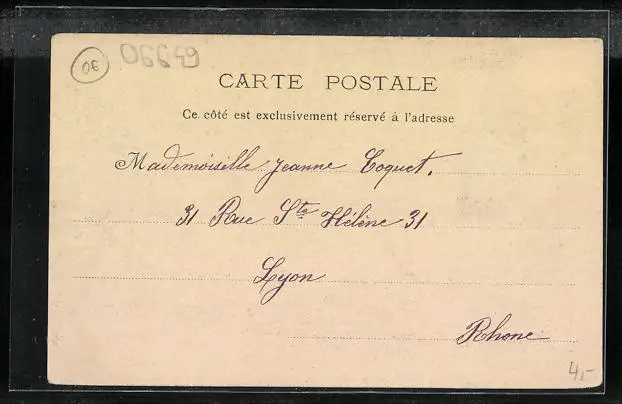 06 06649
CARTE POSTALE
Ce côté est exclusivement réservé à l'adresse
Mademoiselle Jeanne Coquet.
31 Rue Ste Hélène 31
Lyon
Rhone
4,-